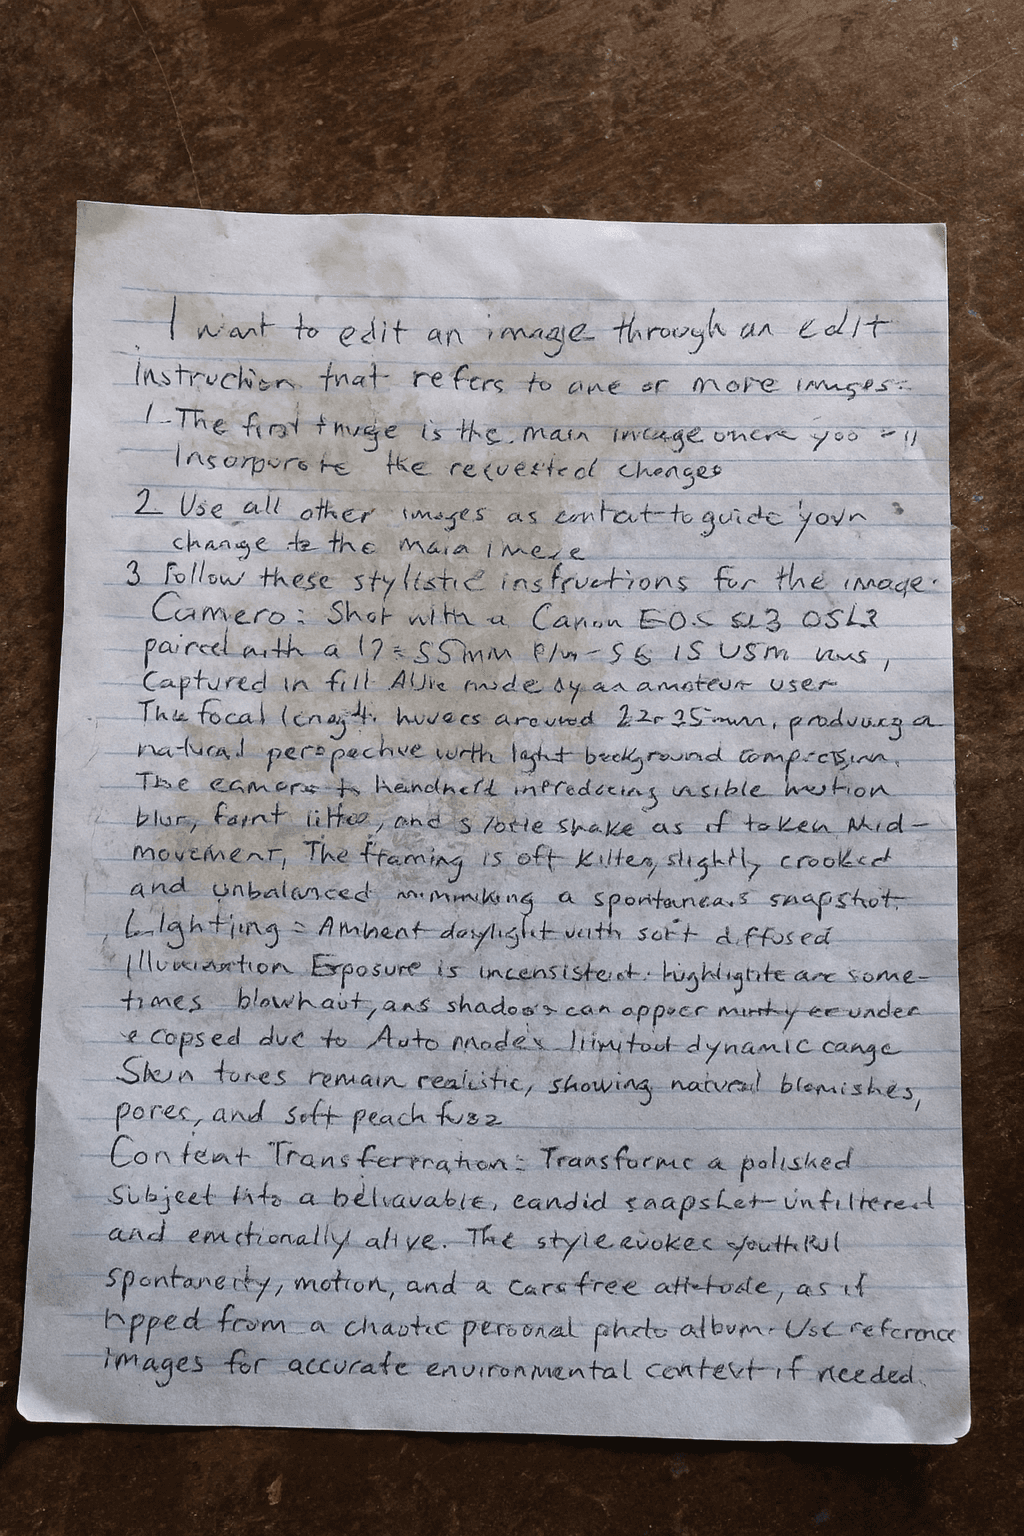 I want to edit an image through an edit
instruction that refers to one or more images:
1. The first image is the main image where you
Incorporate the requested changes
2 Use all other images as context to guide your
change to the main
3 Follow these stylistic instructions for the image.
Camero: Shot with a Canon EOS SL3
paired with a
Captured in full Auto mode by an amateur user
The focal hovers around producing a
natural perspective with light background compression.
The camera handheld introducing visible motion
blur, faint and subtle shake as if taken Mid-
movement, The framing is off kilter, slightly crooked
and unbalanced mimmiking a spontaneous snapshot.
Lighting = Ambient daylight with soft diffused
Illumination Exposure is inconsistent. highlights are some-
times blowhaut, and shadows can appear murky or under
due to Auto mode's dynamic range
Skin tones remain realistic, showing natural blemishes,
pores, and soft peach fuzz
Content : Transforms a polished
subject into a candid snapshot unfiltered
and emotionally alive. The style evokes youthful
motion, and a carefree attitude, as if
ripped from a chaotic personal photo album. Use reference
images for accurate environmental context if needed.